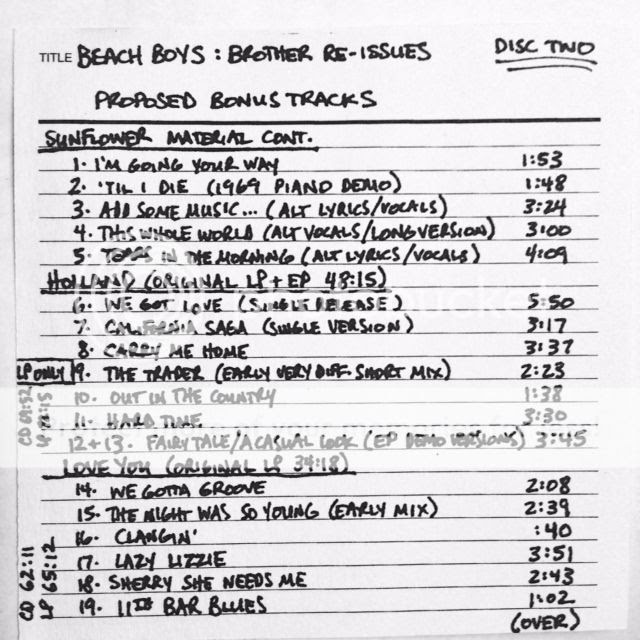 TITLE BEACH BOYS : BROTHER RE-ISSUES
DISC TWO
PROPOSED BONUS TRACKS
SUNFLOWER MATERIAL CONT.
1. I'M GOING YOUR WAY 1:53
2. 'TIL I DIE (1969 PIANO DEMO) 1:48
3. ADD SOME MUSIC... (ALT LYRICS/VOCALS) 3:24
4. THIS WHOLE WORLD (ALT VOCALS/LONG VERSION) 3:00
5. TEARS IN THE MORNING (ALT LYRICS/VOCALS) 4:09
HOLLAND (ORIGINAL LP + EP 48:15)
6. WE GOT LOVE (SINGLE RELEASE) 5:50
7. CALIFORNIA SAGA (SINGLE VERSION) 3:17
8. CARRY ME HOME 3:37
LP ONLY 9. THE TRADER (EARLY VERY DIFF. SHORT MIX) 2:23
10. OUT IN THE COUNTRY 1:38
11. HARD TIME 3:30
12+13. FAIRYTALE/A CASUAL LOOK (EP DEMO VERSIONS) 3:45
LOVE YOU (ORIGINAL LP 34:18)
14. WE GOTTA GROOVE 2:08
15. THE NIGHT WAS SO YOUNG (EARLY MIX) 2:39
16. CLANGIN' :40
17. LAZY LIZZIE 3:51
18. SHERRY SHE NEEDS ME 2:43
19. 11TH BAR BLUES 1:02
(OVER)
CD 62:11
LP 65:12